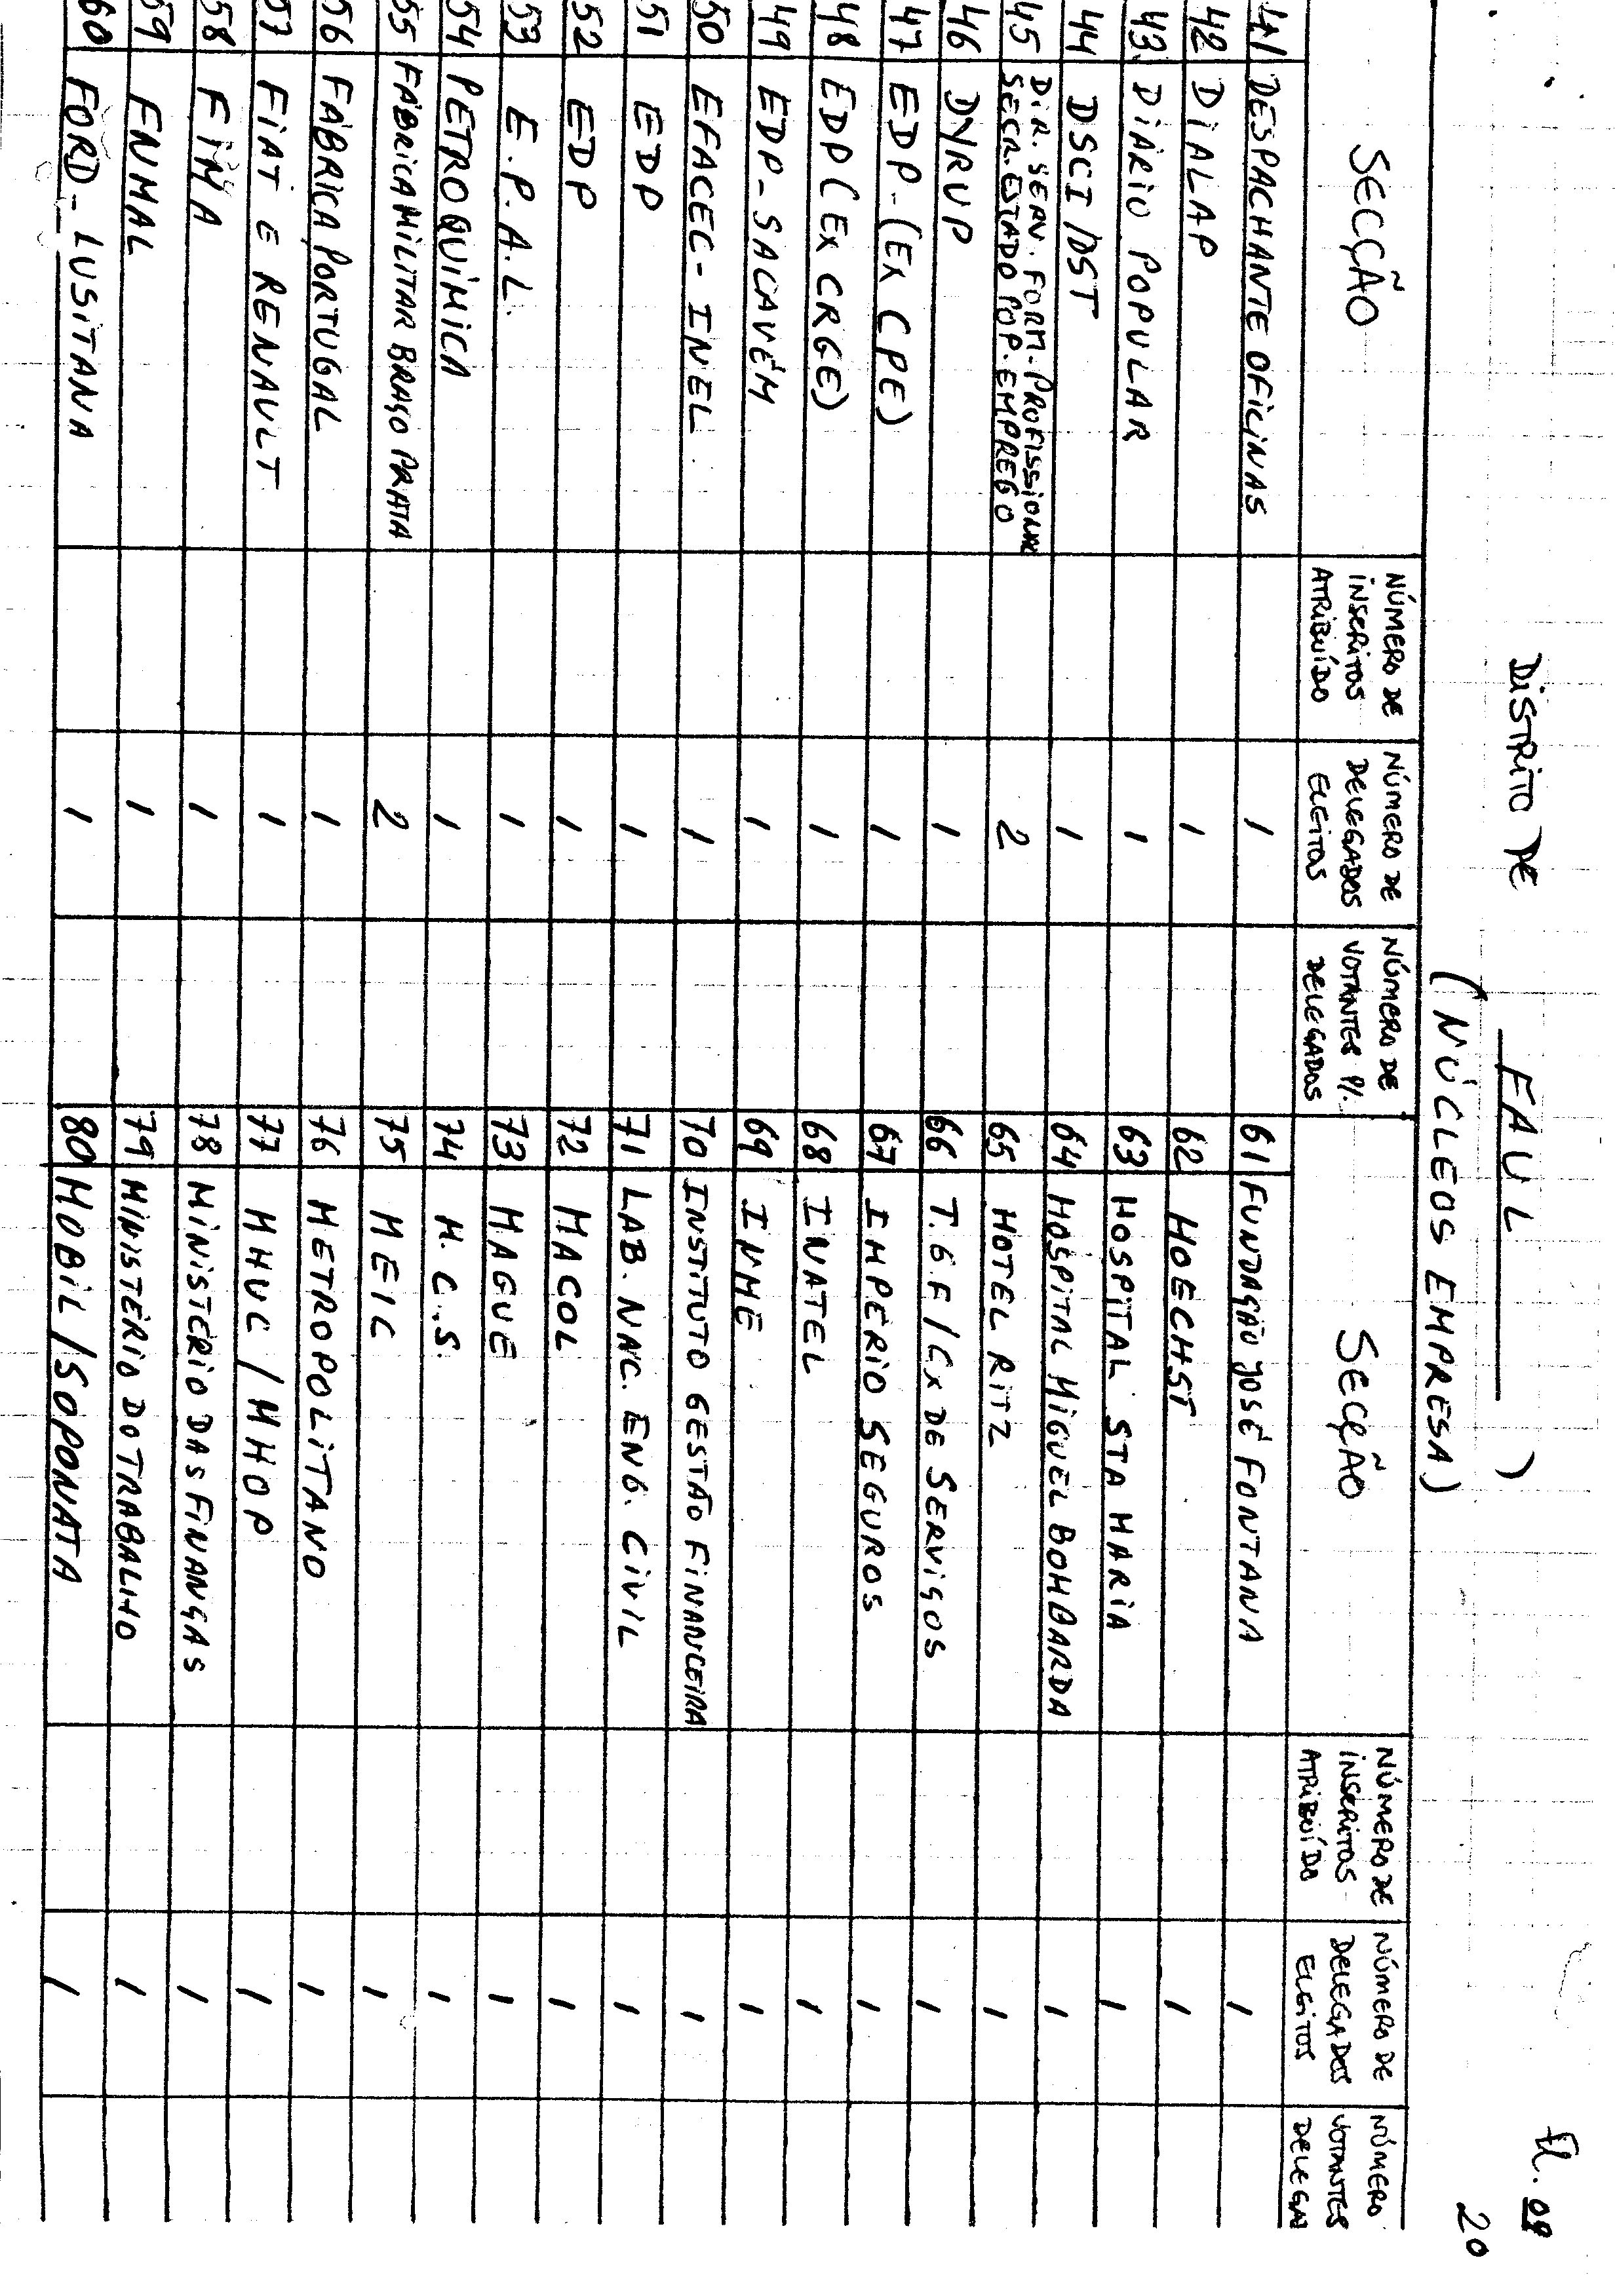 DISTRITO DE FAUL )
(NÚCLEOS EMPRESA)
Fl. 09
20
SECÇÃO NÚMERO DE INSCRITOS ATRIBUÍDO NÚMERO DE DELEGADOS ELEITOS NÚMERO DE VOTANTES P/. DELEGADOS SECÇÃO NÚMERO DE INSCRITOS ATRIBUÍDO NÚMERO DE DELEGADOS ELEITOS NÚMERO VOTANTES DELEGA
41 DESPACHANTE OFICINAS 1 61 FUNDAÇÃO JOSÉ FONTANA 1
42 DIALAP 1 62 HOECHST 1
43 DIÁRIO POPULAR 1 63 HOSPITAL STA MARIA 1
44 DSCI/DST 1 64 HOSPITAL MIGUEL BOMBARDA 1
45 DIR. SERV. FORM. PROFISSIONAL SECR. ESTADO POP. EMPREGO 2 65 HOTEL RITZ 1
46 DYRUP 1 66 T.G.F/CX DE SERVIÇOS 1
47 EDP-(EX CPE) 1 67 IMPÉRIO SEGUROS 1
48 EDP (EX CRGE) 1 68 INATEL 1
49 EDP-SACAVÉM 1 69 INME 1
50 EFACEC-INEL 1 70 INSTITUTO GESTÃO FINANCEIRA 1
51 EDP 1 71 LAB. NAC. ENG. CIVIL 1
52 EDP 1 72 MACOL 1
53 E.P.A.L 1 73 MAGUE 1
54 PETROQUÍMICA 1 74 M.C.S. 1
55 FÁBRICA MILITAR BRAÇO PRATA 2 75 MEIC 1
56 FÁBRICA PORTUGAL 1 76 METROPOLITANO 1
57 FIAT E RENAULT 1 77 MHUC/MHOP 1
58 FIMA 1 78 MINISTÉRIO DAS FINANÇAS 1
59 FNMAL 1 79 MINISTÉRIO DO TRABALHO 1
60 FORD-LUSITANA 1 80 MOBIL/SOPONATA 1